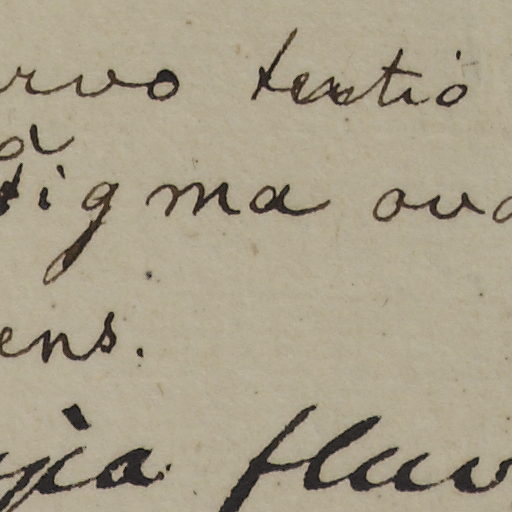 rvo tertio
a
tigma ova
ens.
gia fluv